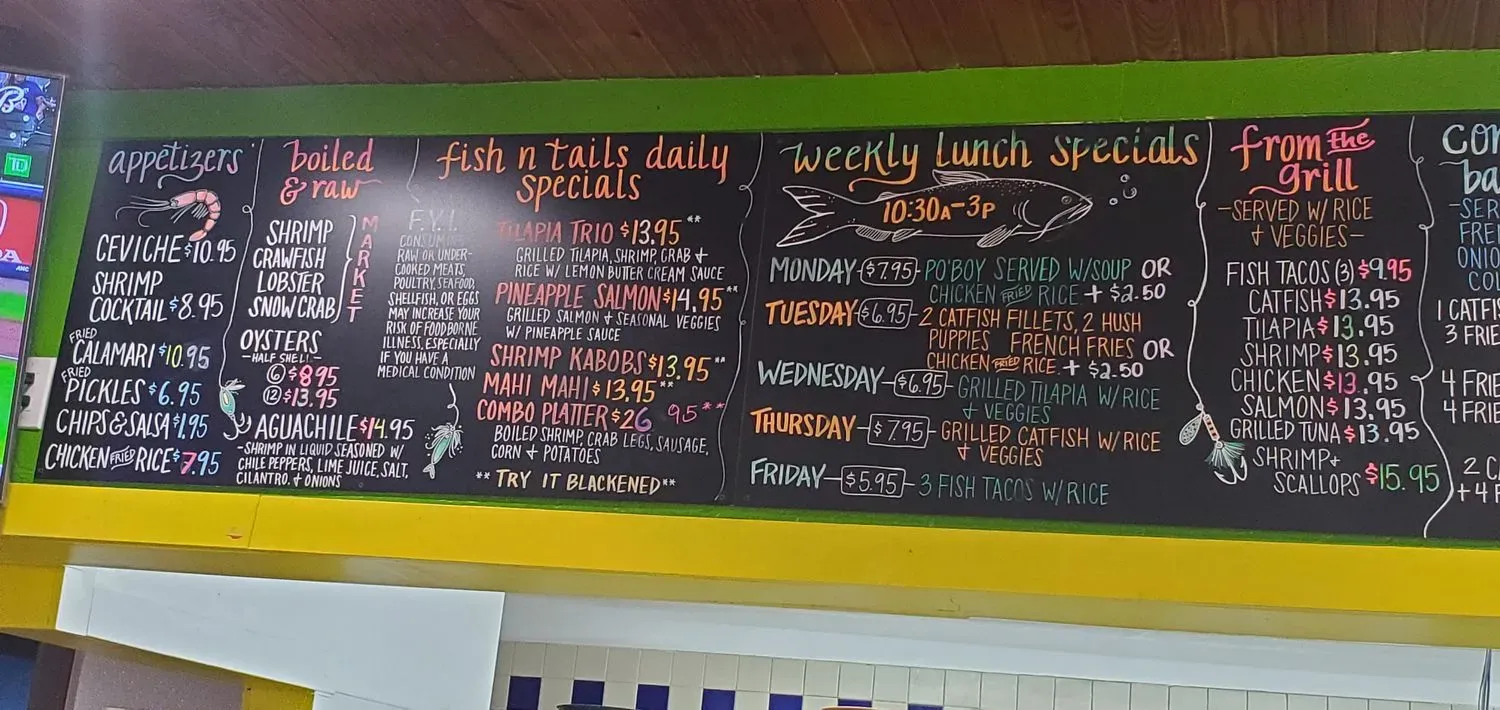 appetizers
CEVICHE $10.95
SHRIMP
COCKTAIL $8.95
FRIED
CALAMARI $10.95
FRIED
PICKLES $6.95
CHIPS & SALSA $1.95
CHICKEN FRIED RICE $7.95
boiled
& raw
SHRIMP
CRAWFISH
LOBSTER
SNOW CRAB
MARKET
OYSTERS
-HALF SHELL-
6 $8.95
12 $13.95
AGUACHILE $14.95
-SHRIMP IN LIQUID SEASONED W/
CHILE PEPPERS, LIME JUICE, SALT,
CILANTRO, & ONIONS
F.Y.I.
CONSUMING
RAW OR UNDER-
COOKED MEATS,
POULTRY, SEAFOOD,
SHELLFISH, OR EGGS
MAY INCREASE YOUR
RISK OF FOODBORNE
ILLNESS, ESPECIALLY
IF YOU HAVE A
MEDICAL CONDITION
fish n tails daily
specials
TILAPIA TRIO $13.95**
GRILLED TILAPIA, SHRIMP, CRAB +
RICE W/ LEMON BUTTER CREAM SAUCE
PINEAPPLE SALMON $14.95**
GRILLED SALMON + SEASONAL VEGGIES
W/ PINEAPPLE SAUCE
SHRIMP KABOBS $13.95**
MAHI MAHI $13.95**
COMBO PLATTER $26 95**
BOILED SHRIMP, CRAB LEGS, SAUSAGE,
CORN + POTATOES
** TRY IT BLACKENED**
weekly lunch specials
10:30A-3P
MONDAY-($7.95)-PO'BOY SERVED W/SOUP OR
CHICKEN FRIED RICE + $2.50
TUESDAY-($6.95)-2 CATFISH FILLETS, 2 HUSH
PUPPIES FRENCH FRIES OR
CHICKEN FRIED RICE + $2.50
WEDNESDAY-($6.95)-GRILLED TILAPIA W/RICE
+ VEGGIES
THURSDAY-($7.95)-GRILLED CATFISH W/RICE
+ VEGGIES
FRIDAY-($5.95)-3 FISH TACOS W/RICE
from the
grill
-SERVED W/ RICE
+ VEGGIES-
FISH TACOS (3) $9.95
CATFISH $13.95
TILAPIA $13.95
SHRIMP $13.95
CHICKEN $13.95
SALMON $13.95
GRILLED TUNA $13.95
SHRIMP +
SCALLOPS $15.95
1 CATFIS
3 FRIE
4 FRIE
4 FRIE
2 CA
+ 4 F
TD